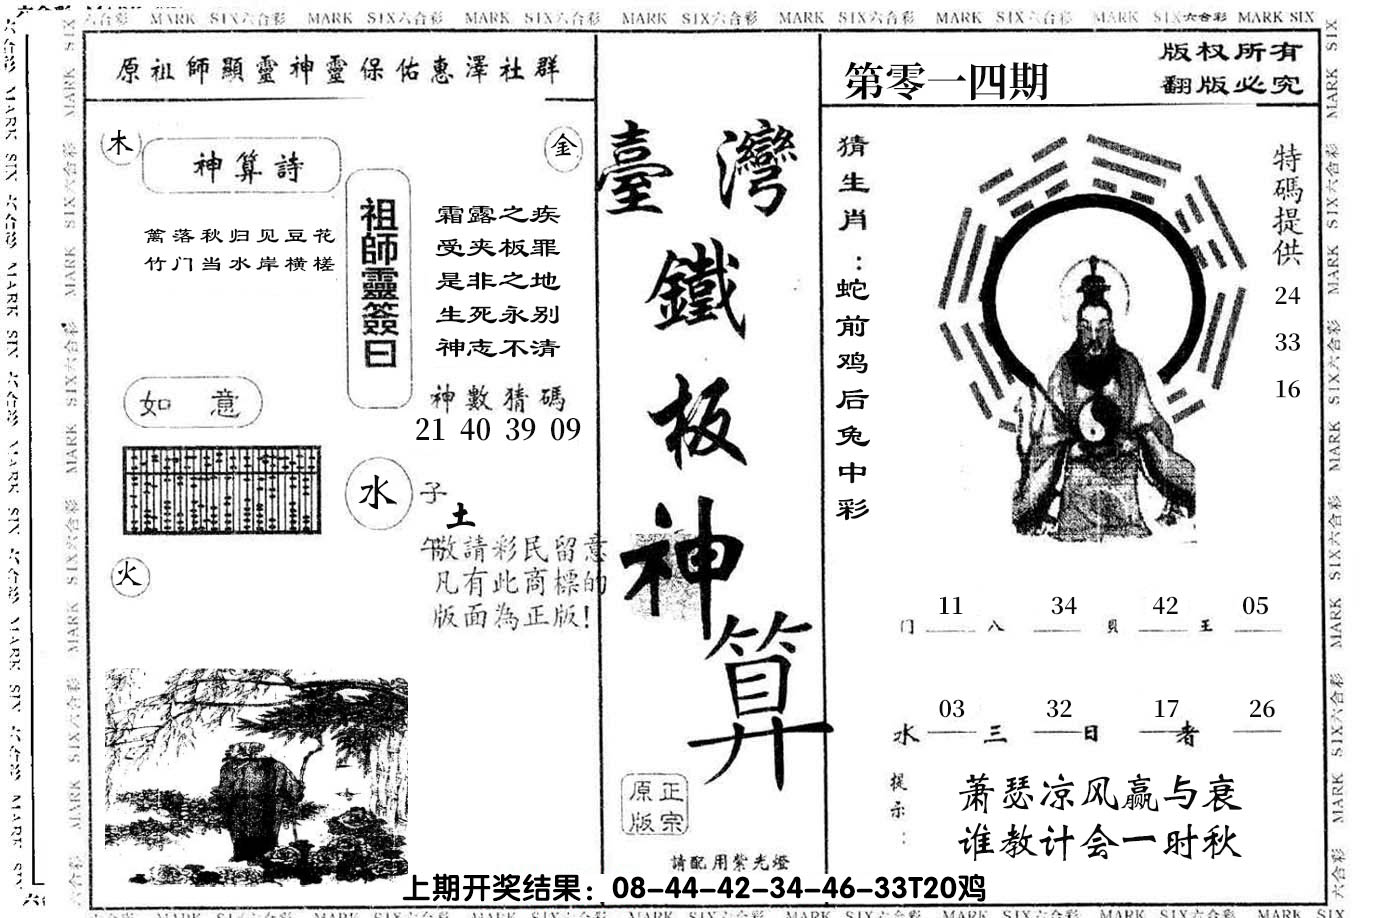 六合彩 MARK SIX六合彩 MARK SIX六合彩 MARK SIX六合彩 MARK SIX六合彩 MARK SIX六合彩 MARK SIX六合彩 MARK SIX六合彩 MARK SIX
原祖師顯靈神靈保佑惠澤社群
木
神算詩
金
篱落秋归见豆花
竹门当水岸横槎
祖師靈簽曰
霜露之疾
受夹板罪
是非之地
生死永别
神志不清
如意
神數猜碼
21 40 39 09
水
子
土
午
火
敬請彩民留意
凡有此商標的
版面為正版!
臺灣
鐵
板
神
算
正宗
原版
請配用紫光燈
第零一四期
版权所有
翻版必究
猜生肖:蛇前鸡后兔中彩
特碼提供
24
33
16
11 34 42 05
门 八 贝 王
03 32 17 26
水 三 日 者
提示:
萧瑟凉风赢与衰
谁教计会一时秋
上期开奖结果：08-44-42-34-46-33T20鸡